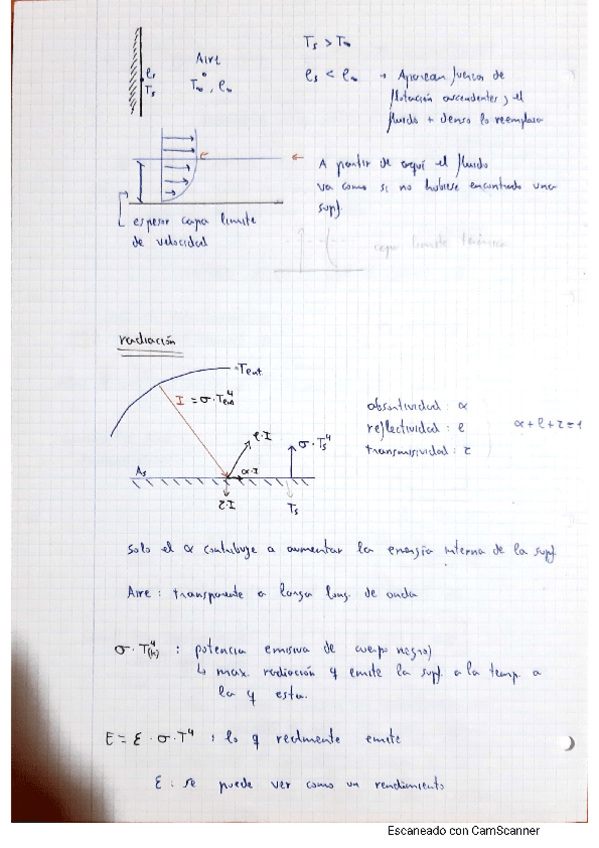 Ts > T∞
Aire
ρs
Ts
T∞, ρ∞
ρs < ρ∞ → Aparecen fuerzas de
flotación ascendentes y el
fluido + denso lo reemplaza
← A partir de aquí el fluido
va como si no hubiese encontrado una
supf.
espesor capa límite
de velocidad
capa límite térmica
radiación
Tent
I = σ·Tent⁴
ρ·I
σ·Ts⁴
α·I
As
τ·I
Ts
absortividad: α
reflectividad: ρ
transmisividad: τ
α + ρ + τ = 1
Solo el α contribuye a aumentar la energía interna de la supf.
Aire: transparente a larga long. de onda
σ·T⁴(K) : potencia emisiva de cuerpo negro)
↳ max. radiación q emite la supf. a la temp. a
la q esta.
E = ε·σ·T⁴ : lo q realmente emite
ε: se puede ver como un rendimiento
Escaneado con CamScanner